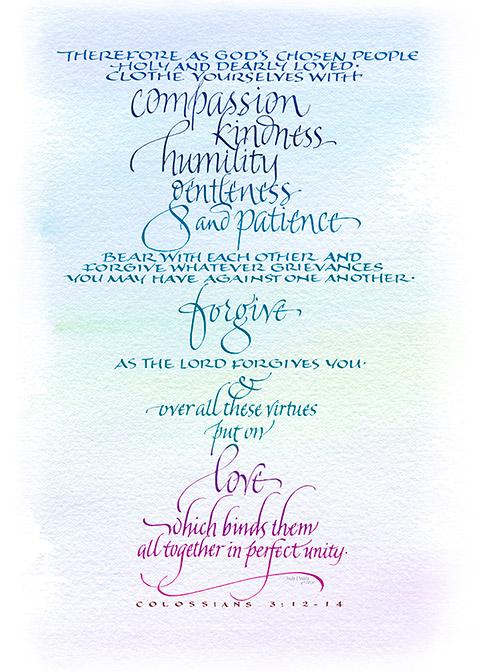 THEREFORE AS GOD'S CHOSEN PEOPLE
·HOLY AND DEARLY LOVED·
CLOTHE YOURSELVES WITH
compassion
kindness
humility
gentleness
and patience
BEAR WITH EACH OTHER AND
FORGIVE WHATEVER GRIEVANCES
YOU MAY HAVE AGAINST ONE ANOTHER·
forgive
AS THE LORD FORGIVES YOU·
&
over all these virtues
put on
love
which binds them
all together in perfect unity·
COLOSSIANS 3:12-14